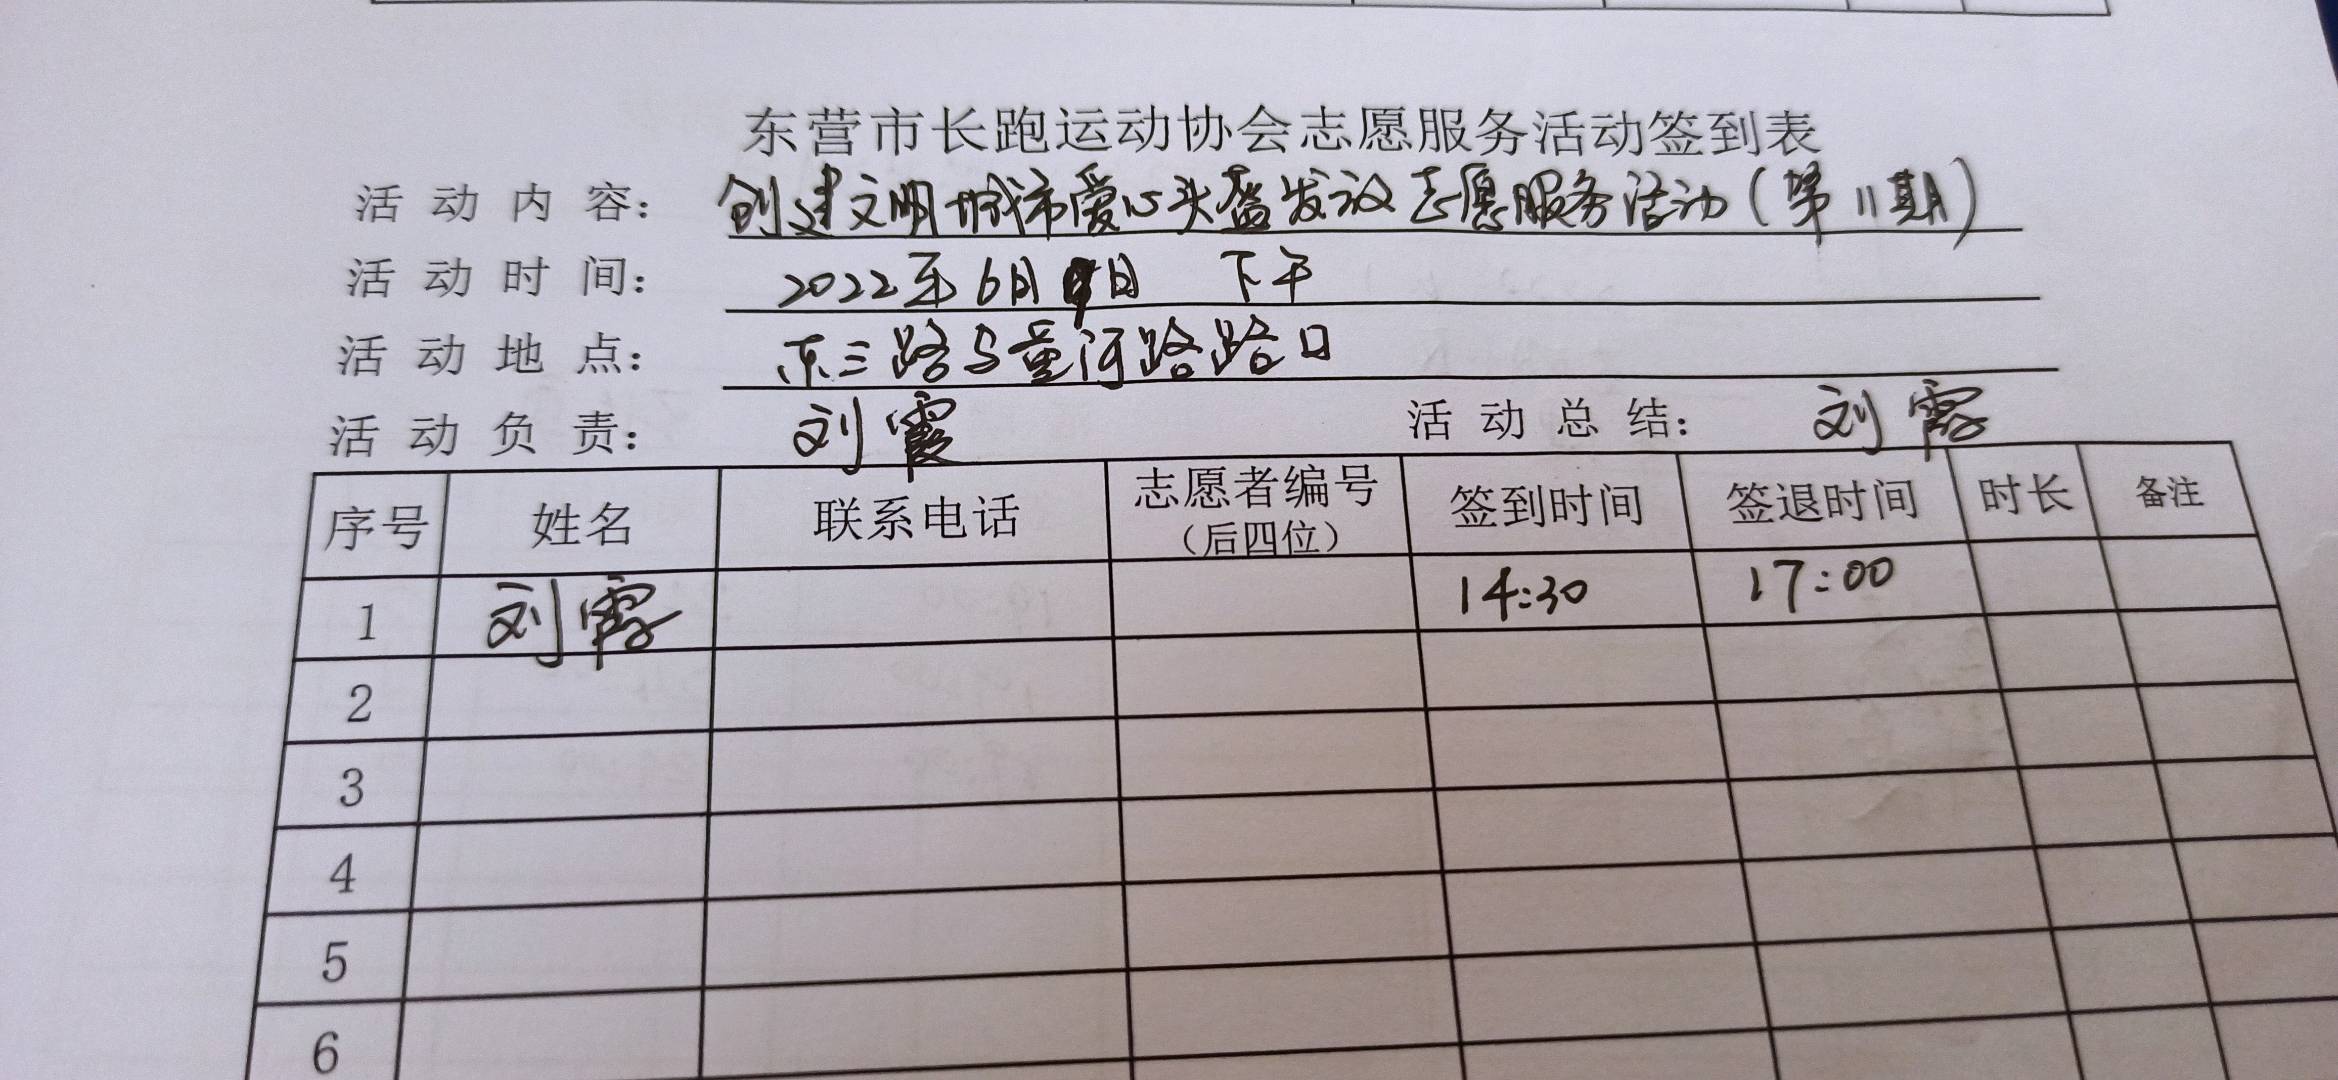 东营市长跑运动协会志愿服务活动签到表
活动内容： 创建文明城市爱心头盔发放志愿服务活动（第11期）
活动时间： 2022年6月9日 下午
活动地点： 东三路与黄河路路口
活动负责： 刘霞 活动总结： 刘霞
序号 姓名 联系电话 志愿者编号（后四位） 签到时间 签退时间 时长 备注
1 刘霞 14:30 17:00
2
3
4
5
6